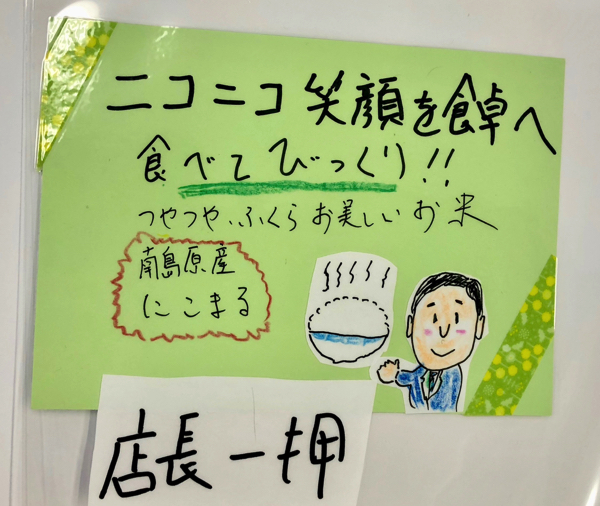 ニコニコ笑顔を食卓へ
食べてびっくり!!
つやつや、ふくらお美しいお米
南島原産
にこまる
店長一押